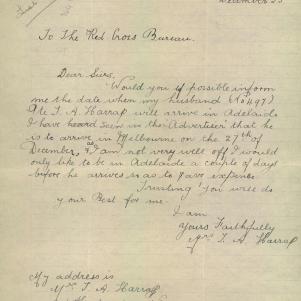 December 23
To The Red Cross Bureau.
Dear Sirs,
Would you if possible inform
me the date when my husband (No 497)
Pte T. A. Harraf will arrive in Adelaide
I have heard seen in the Advertiser that he
is to arrive in Melbourne on the 27th of
December, as I am not very well off I would
only like to be in Adelaide a couple of days
before he arrives so as to save expence
Trusting You will do
your Best for me.
I am
Yours Faithfully
Mrs T. A. Harraf
My address is
Mrs T. A. Harraf